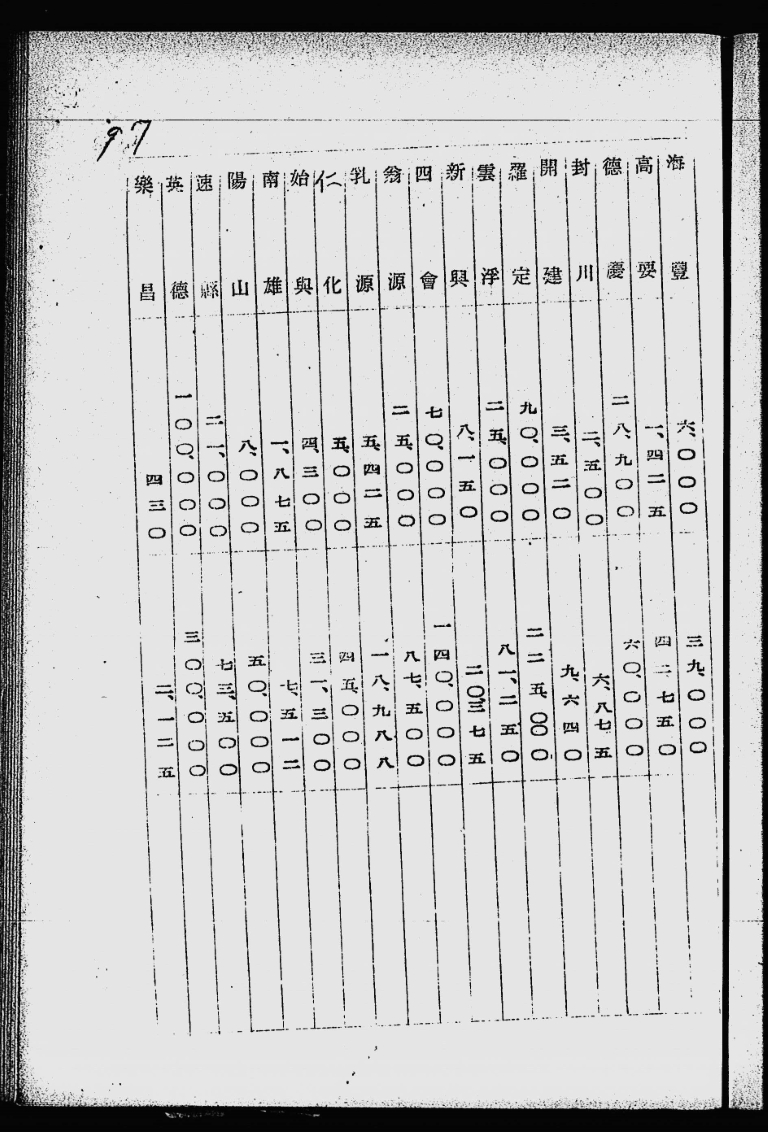 97
海豐 六、〇〇〇 三九、〇〇〇
高要 一、四二五 四二、七五〇
德慶 二八、九〇〇 六〇、〇〇〇
封川 二、五〇〇 六、八七五
開建 三、五二〇 九、六四〇
羅定 九〇、〇〇〇 二二五、〇〇〇
雲浮 二五、〇〇〇 八一、二五〇
新興 八、一五〇 二〇、三七五
四會 七〇、〇〇〇 一四〇、〇〇〇
翁源 二五、〇〇〇 八七、五〇〇
乳源 五、四二五 一八、九八八
仁化 五、〇〇〇 四五、〇〇〇
始與 四、三〇〇 三一、三〇〇
南雄 一、八七五 七、五一二
陽山 八、〇〇〇 五〇、〇〇〇
速縣 二一、〇〇〇 七三、五〇〇
英德 一〇〇、〇〇〇 三〇〇、〇〇〇
樂昌 四三〇 二、一二五